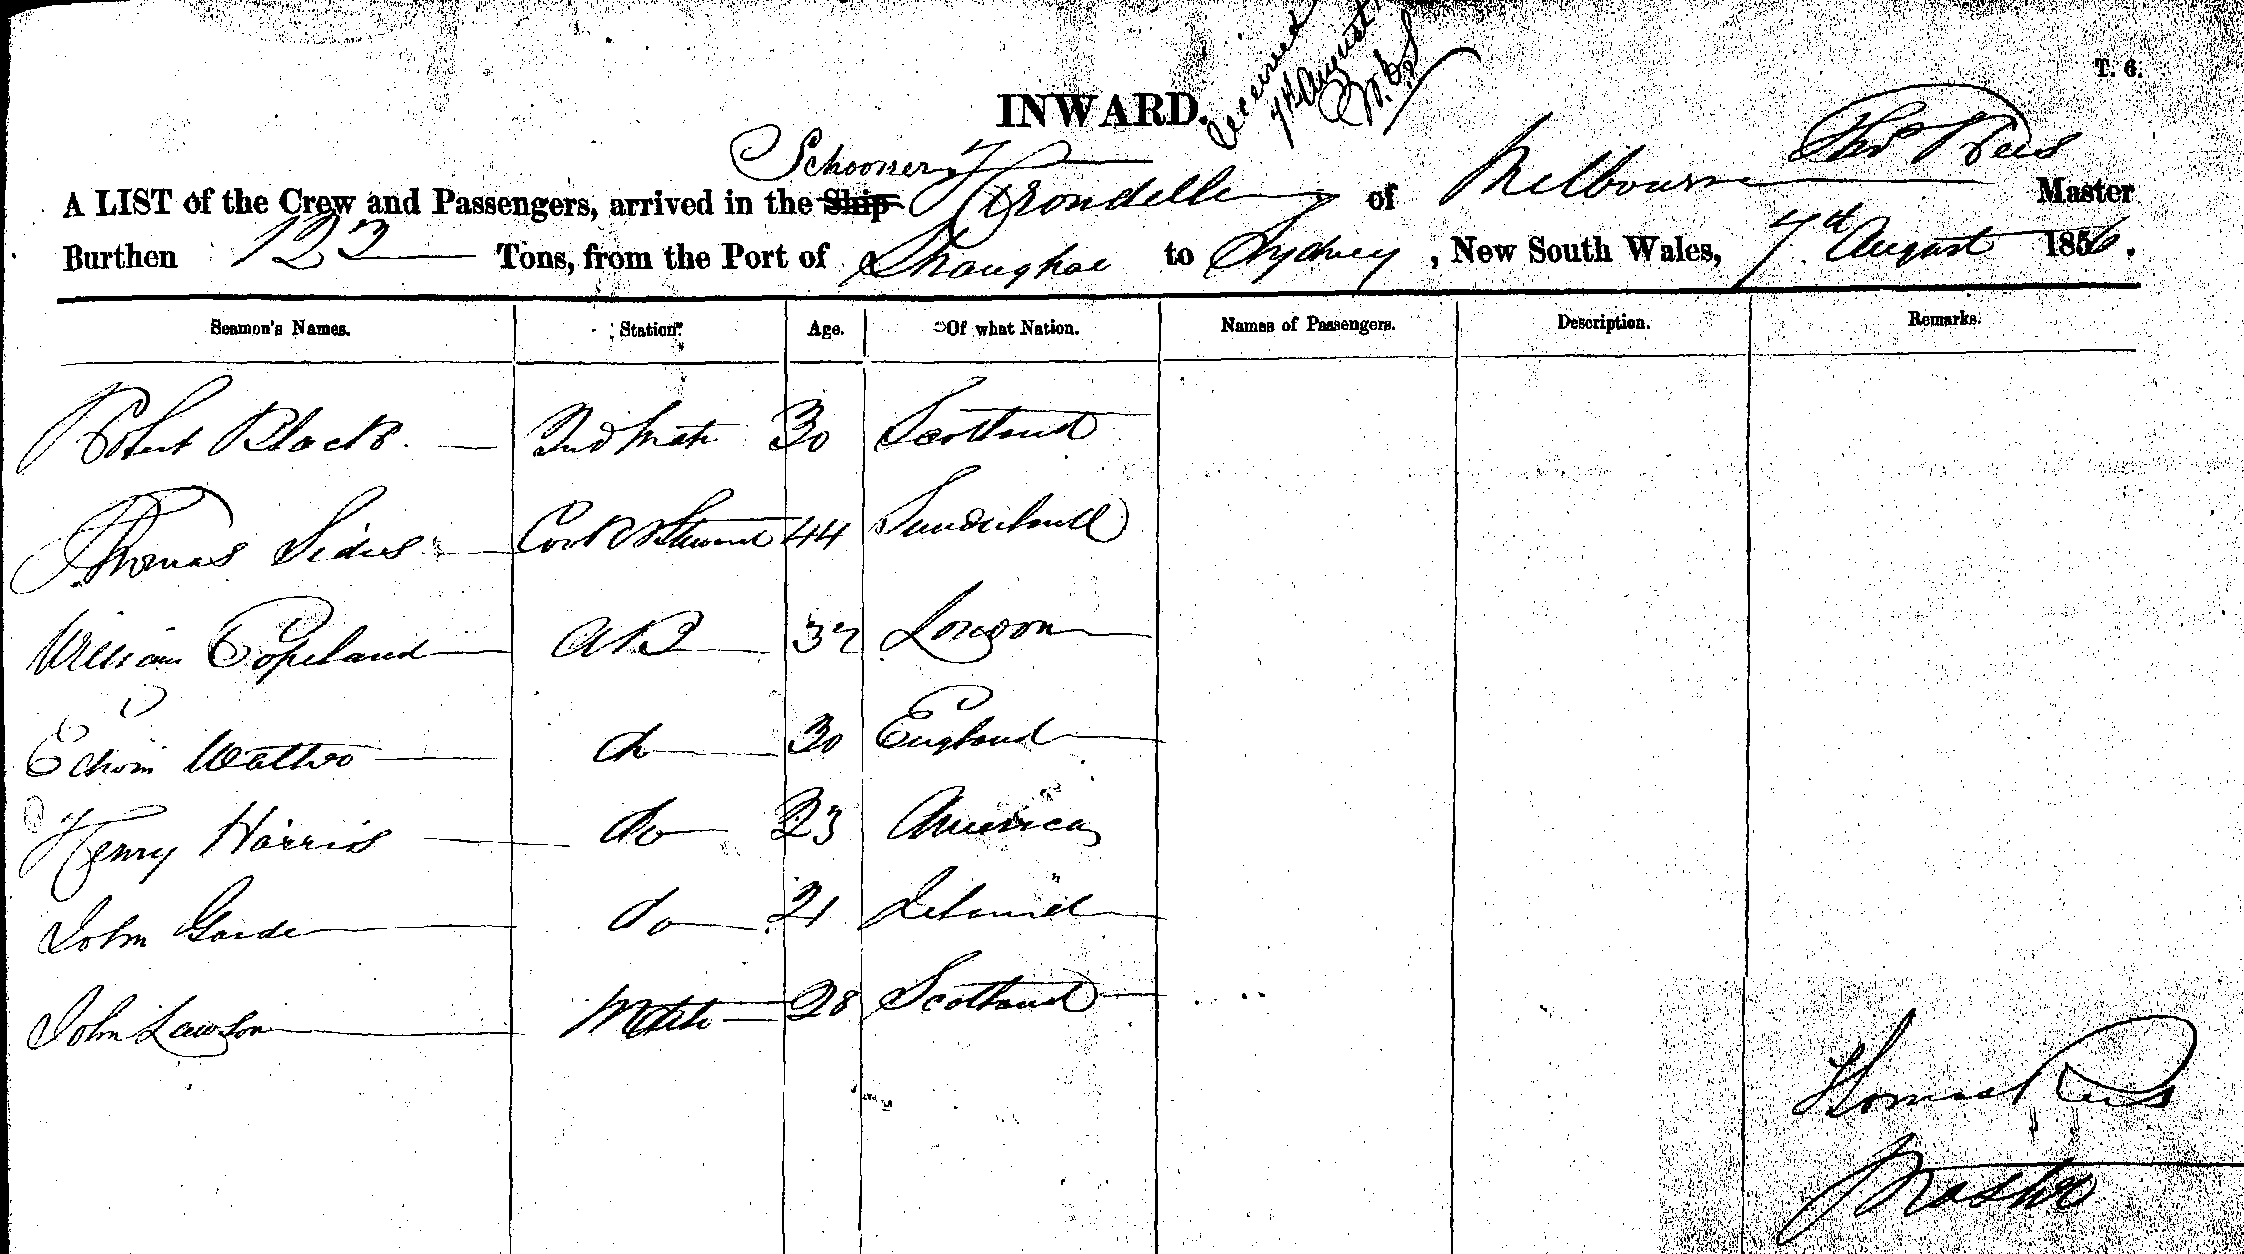 T. 6.
Received
7th August
INWARD.
Schooner
Thos Rees
A LIST of the Crew and Passengers, arrived in the Ship Hirondelle of Melbourne Master
Burthen 123 Tons, from the Port of Shanghae to Sydney, New South Wales, 7th August 1856.
Seamen's Names. Station. Age. Of what Nation. Names of Passengers. Description. Remarks.
Robert Black 2nd Mate 30 Scotland
Thomas Cook & Steward 44 Sunderland
William Copeland AB 32 London
Edwin do 30 England
Henry Harris do 23 America
John do 21 Ireland
John Lawson Mate 28 Scotland
Thomas Rees
Master